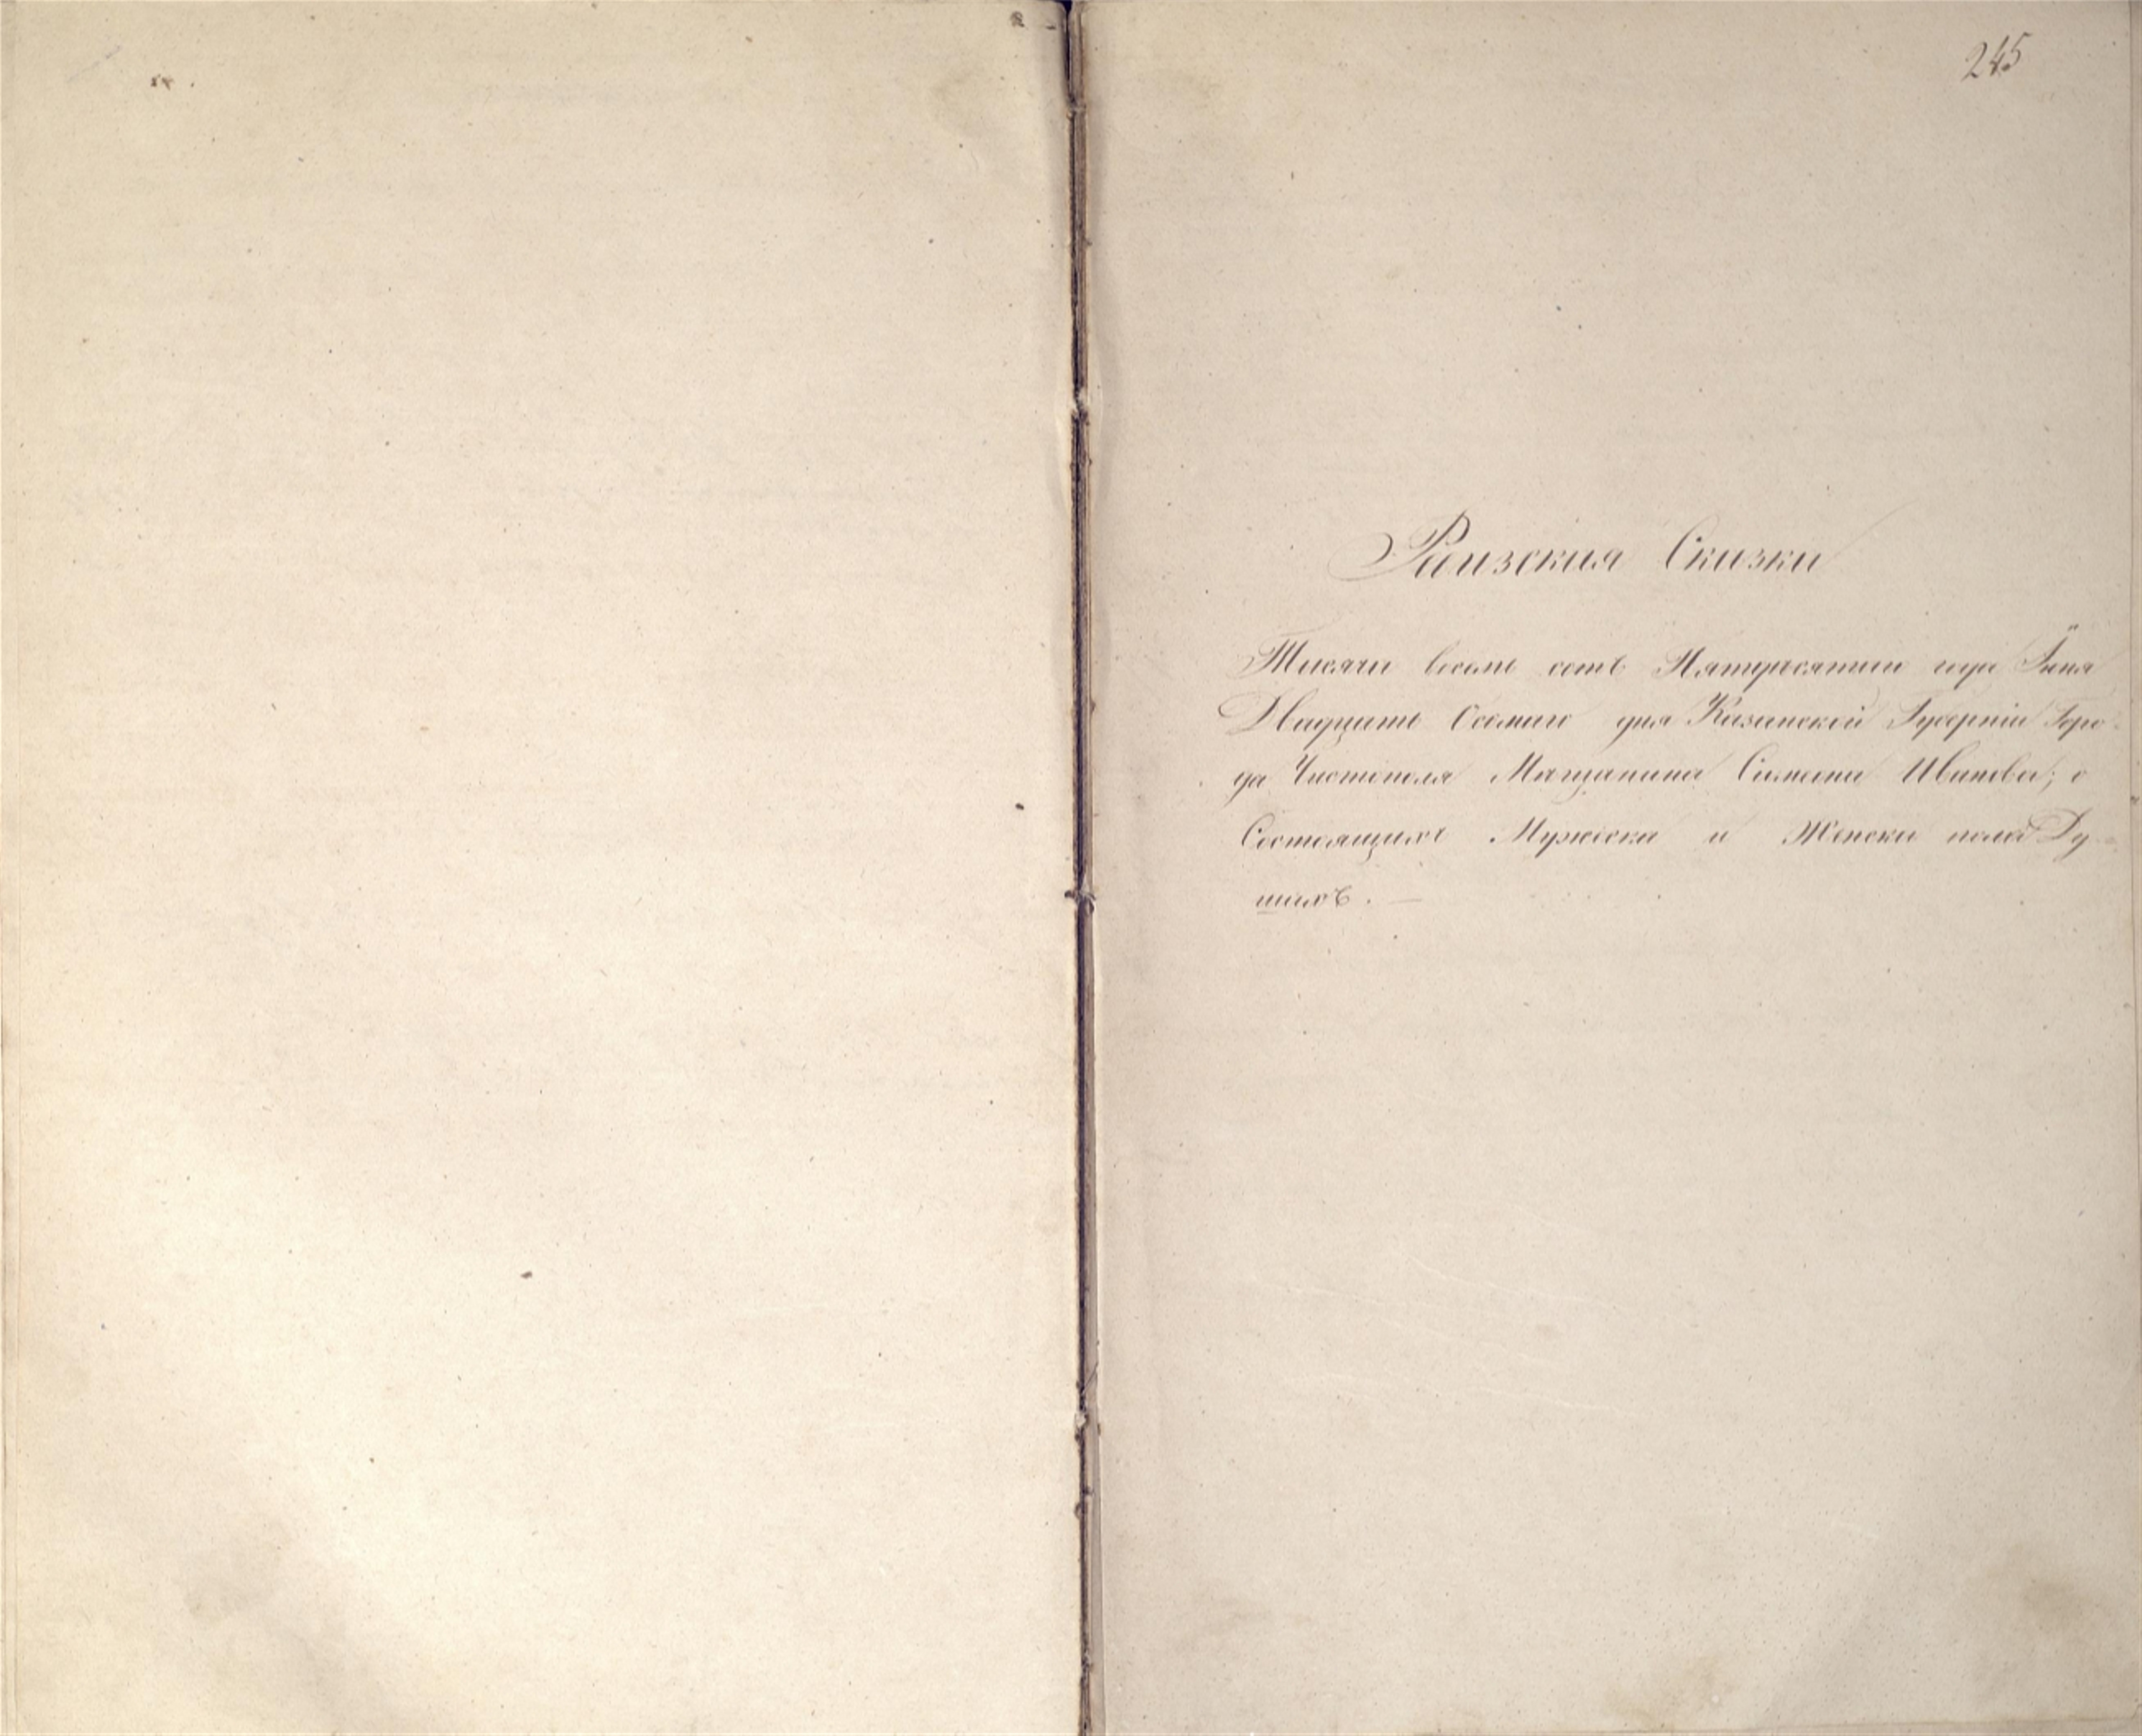 245
Ривизския Сказки
Тысяча восемь сотъ Пятидесятаго года Іюня
Двадцать Осьмаго дня Казанской Губерніи Горо-
да Чистополя Мѣщанина Симиона Иванова; о
Состоящихъ Мужеска и Женска пола Ду-
шахъ. —